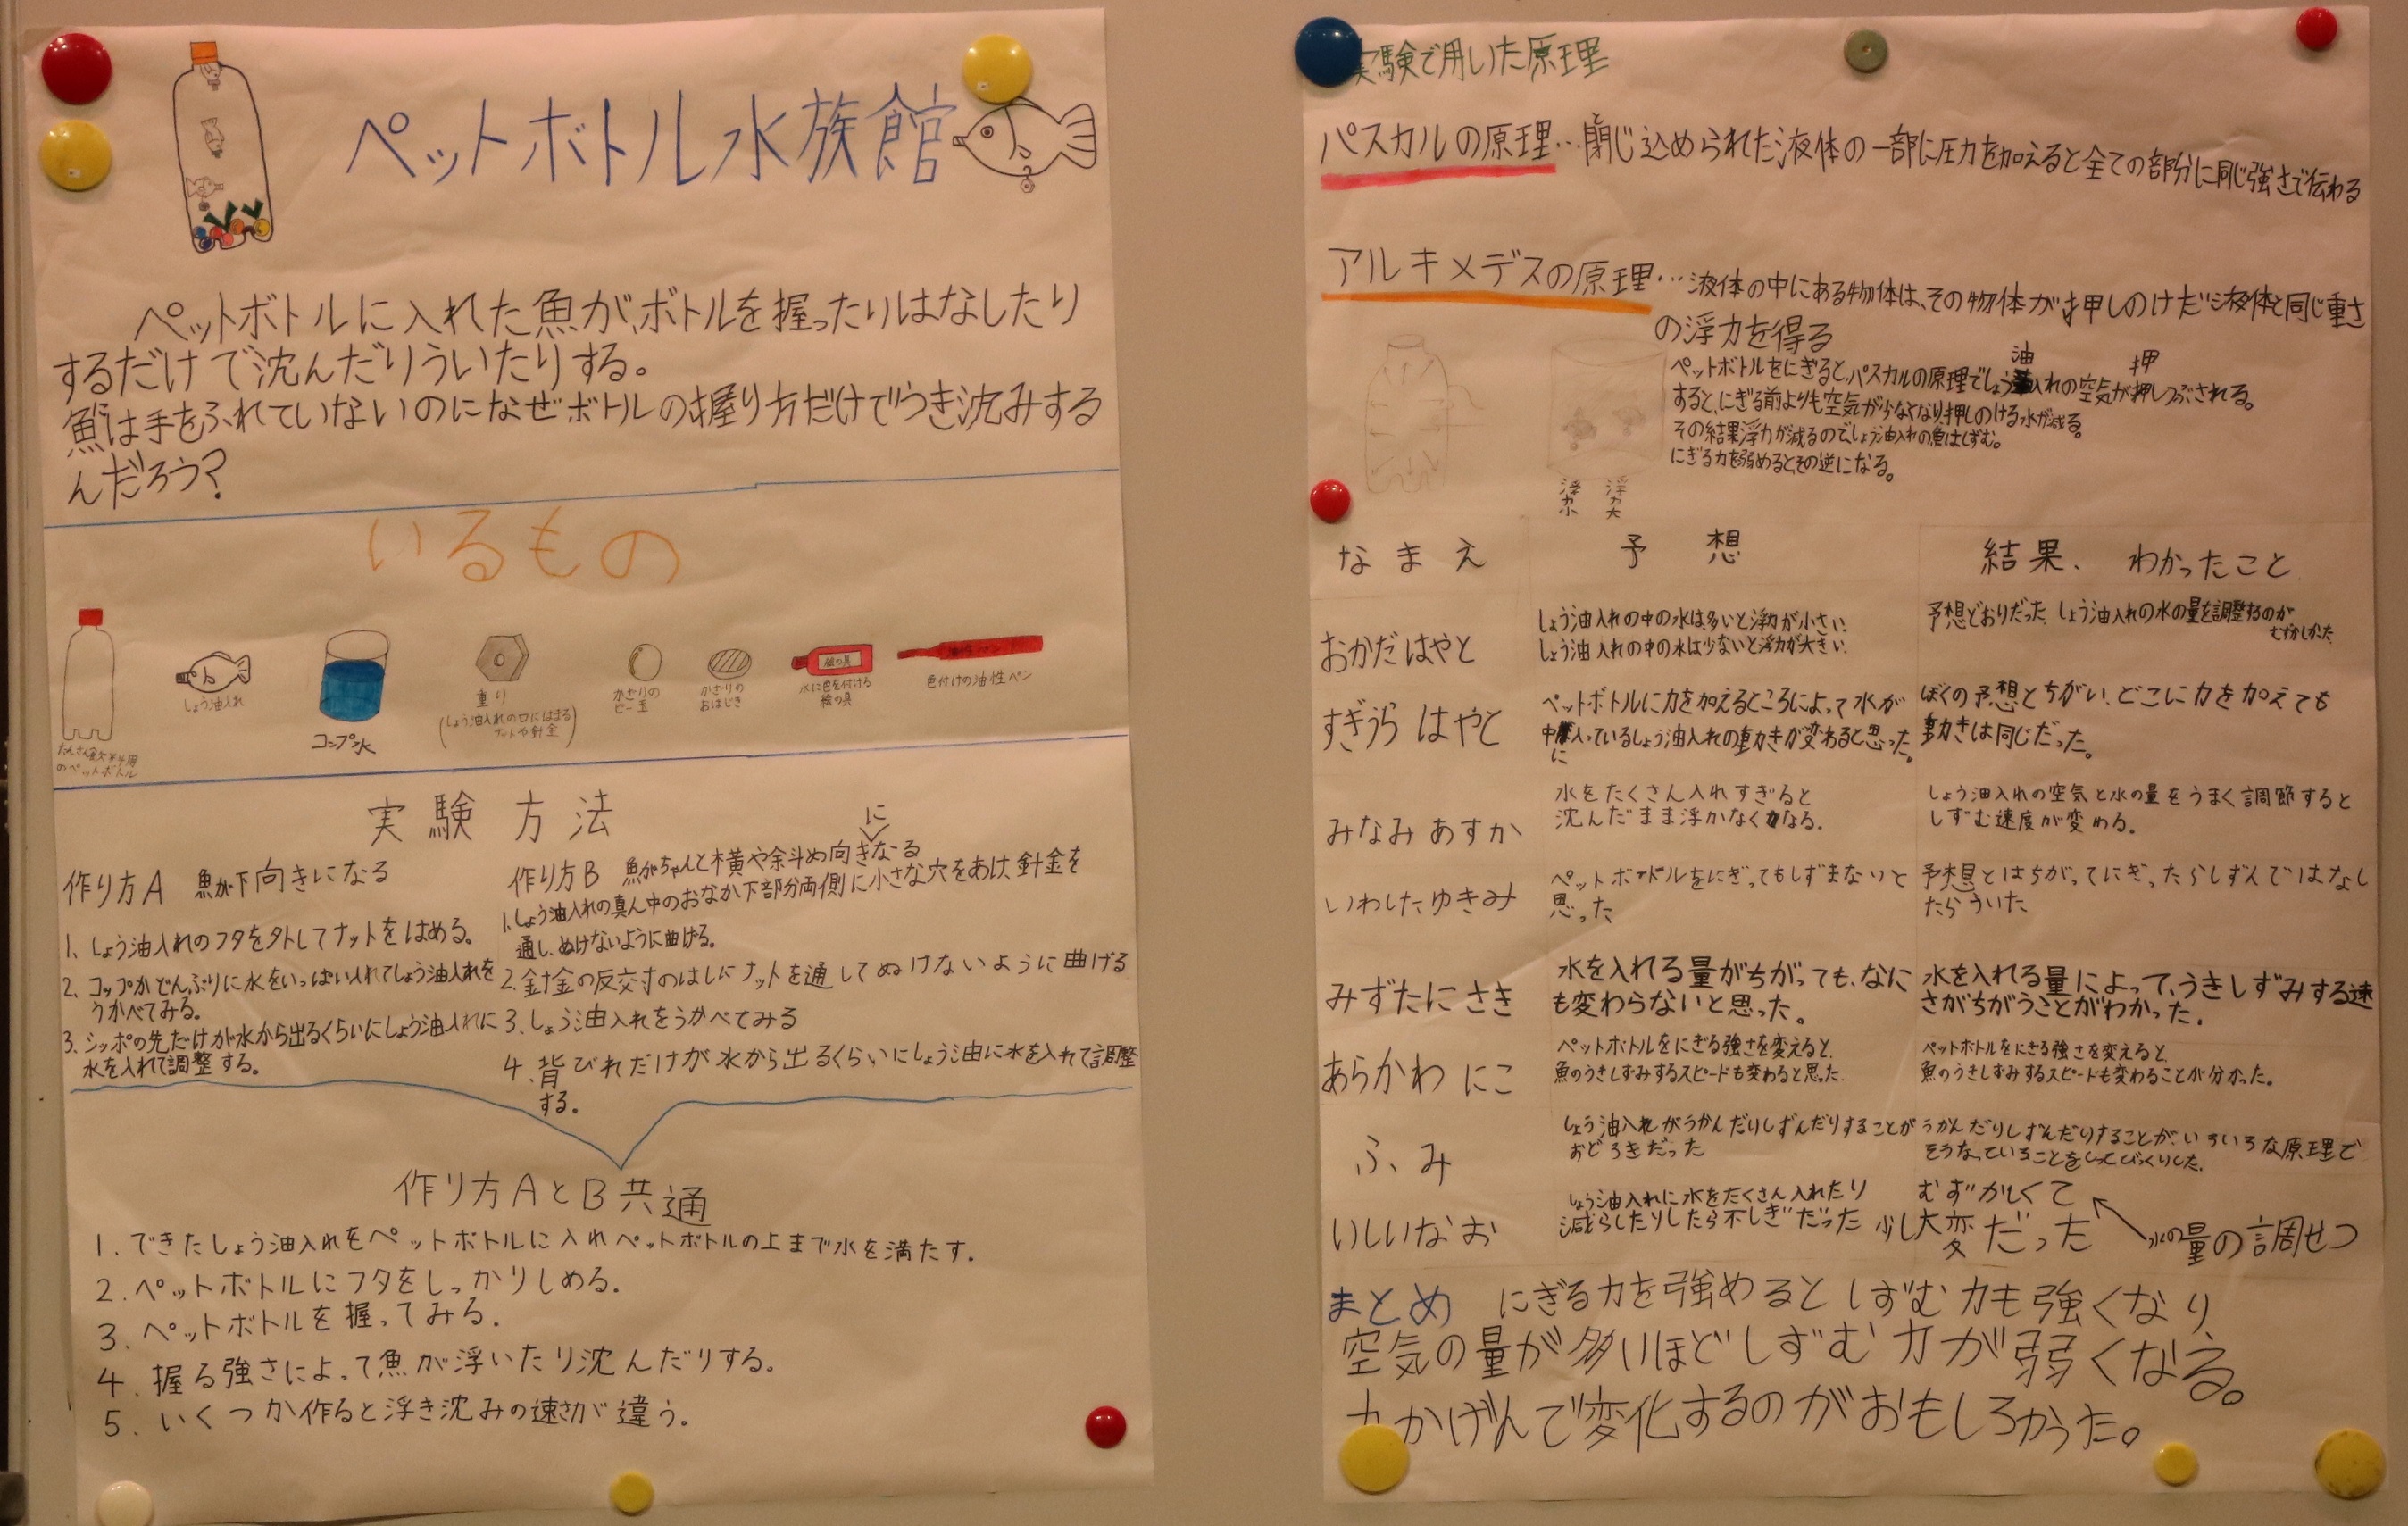 ペットボトル水族館
ペットボトルに入れた魚が、ボトルを握ったりはなしたり
するだけで沈んだりういたりする。
魚は手をふれていないのになぜボトルの握り方だけでうき沈みする
んだろう?
いるもの
たんさん飲料用
のペットボトル
しょう油入れ
コップ水
重り
(しょう油入れの口にはまる
ナットや針金)
かざりの
ビー玉
かざりの
おはじき
絵の具
水に色を付ける
絵の具
油性ペン
色付けの油性ペン
実験方法
作り方A 魚が下向きになる
1. しょう油入れのフタを外してナットをはめる。
2. コップかどんぶりに水をいっぱい入れてしょう油入れを
うかべてみる。
3. シッポの先だけが水から出るくらいにしょう油入れに
水を入れて調整する。
作り方B 魚がちゃんと横や斜め向きになる
1. しょう油入れの真ん中のおなか下部分両側に小さな穴をあけ、針金を
通し、ぬけないように曲げる。
2. 針金の反対のはしにナットを通してぬけないように曲げる
3. しょう油入れをうかべてみる
4. 背びれだけが水から出るくらいにしょう油に水を入れて調整
する。
作り方AとB共通
1. できたしょう油入れをペットボトルに入れペットボトルの上まで水を満たす。
2. ペットボトルにフタをしっかりしめる。
3. ペットボトルを握ってみる。
4. 握る強さによって魚が浮いたり沈んだりする。
5. いくつか作ると浮き沈みの速さが違う。
実験で用いた原理
パスカルの原理…閉じ込められた液体の一部に圧力を加えると全ての部分に同じ強さで伝わる
アルキメデスの原理…液体の中にある物体は、その物体が押しのけだ液体と同じ重さ
の浮力を得る
ペットボトルをにぎると、パスカルの原理でしょう油入れの空気が押しつぶされる。
すると、にぎる前よりも空気が少なくなり、押しのける水が減る。
その結果浮力が減るので、しょう油入れの魚はしずむ。
にぎる力を弱めると、その逆になる。
浮力小
浮力大
なまえ 予想 結果、わかったこと
おかだはやと
しょう油入れの中の水は多いと浮力が小さい。
しょう油入れの中の水は少ないと浮力が大きい。
予想どおりだった しょう油入れの水の量を調整するのが
むずかしかった
すぎうら はやと
ペットボトルに力を加えるところによって水が
中に入っているしょう油入れの動きが変わると思った。
ぼくの予想とちがい、どこに力を加えても
動きは同じだった。
みなみ あすか
水をたくさん入れすぎると
沈んだまま浮かなくなる。
しょう油入れの空気と水の量をうまく調節すると
しずむ速度が変わる。
いわした ゆきみ
ペットボトルをにぎってもしずまないと
思った
予想とはちがってにぎったらしずんではなし
たらういた
みずたに さき
水を入れる量がちがっても、なに
も変わらないと思った。
水を入れる量によって、うきしずみする速
さがちがうことがわかった。
あらかわ にこ
ペットボトルをにぎる強さを変えると、
魚のうきしずみするスピードも変わると思った。
ペットボトルをにぎる強さを変えると、
魚のうきしずみするスピードも変わることが分かった。
ふみ
しょう油入れがうかんだりしずんだりすることが
おどろきだった
うかんだりしずんだりすることが、いろいろな原理で
そうなっていることをしってびっくりした。
いしいなお
しょう油入れに水をたくさん入れたり
減らしたりしたら不しぎだった
むずかしくて
少し大変だった
水の量の調せつ
まとめ にぎる力を強めるとしずむ力も強くなり
空気の量が多いほどしずむ力が弱くなる。
力かげんで変化するのがおもしろかった。